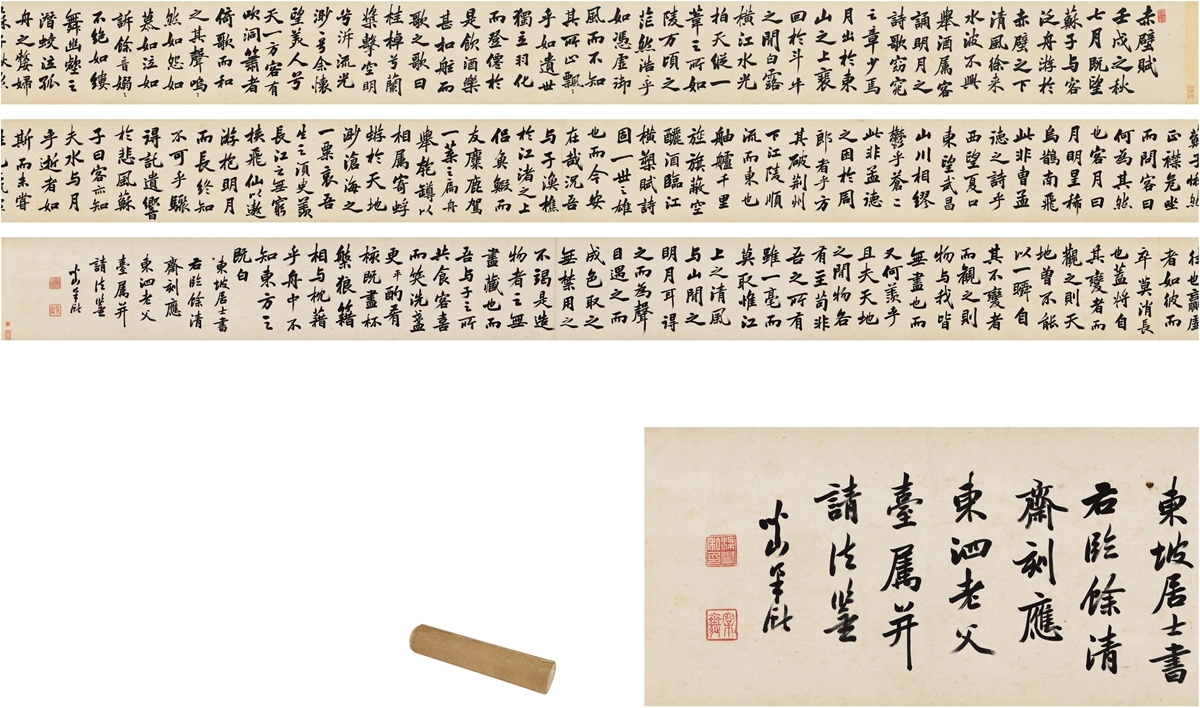 赤壁賦
壬戌之秋
七月既望
蘇子与客
泛舟游於
赤壁之下
清風徐来
水波不興
舉酒属客
誦明月之
詩歌窈窕
之章少焉
月出於東
山之上裵
回於斗牛
之間白露
横江水光
接天縱一
葦之所如
陵万頃之
茫然浩乎
如憑虚御
風而不知
其所止飄〻
乎如遺世
獨立羽化
而登僊於
是飲酒樂
甚扣舷而
歌之歌曰
桂棹兮蘭
槳擊空明
兮泝流光
渺〻兮余懷
望美人兮
天一方客有
吹洞簫者
倚歌而和
之其聲嗚〻
然如怨如
慕如泣如
訴餘音嫋〻
不絶如縷
舞幽壑之
潛蛟泣孤
舟之嫠婦
正襟危坐
而問客曰
何為其然
也客曰
月明星稀
烏鵲南飛
此非曹孟
德之詩乎
西望夏口
東望武昌
山川相繆
鬱乎蒼〻
此非孟德
之困於周
郎者乎方
其破荆州
下江陵順
流而東也
舳艫千里
旌旗蔽空
釃酒臨江
横槊賦詩
固一世之雄
也而今安
在哉况吾
与子漁樵
於江渚之上
侣魚鰕而
友麋鹿駕
一葉之扁舟
舉匏罇以
相属寄蜉
蝣於天地
渺滄海之
一粟哀吾
生之須臾羨
長江之無窮
挟飛仙以遨
游抱明月
而長終知
不可乎驟
得託遺響
於悲風蘇
子曰客亦知
夫水与月
乎逝者如
斯而未嘗
往也贏虚
者如彼而
卒莫消長
也盖將自
其變者而
觀之則天
地曾不能
以一瞬自
其不變者
而觀之則
物与我皆
無盡也而
又何羨乎
且夫天地
之間物各
有主苟非
吾之所有
雖一毫而
莫取惟江
上之清風
与山間之
明月耳得
之而為聲
目遇之而
成色取之
無禁用之
不竭是造
物者之無
盡藏也而
吾与子之所
共食客喜
而笑洗盞
更酌肴
核既盡杯
盤狼籍
相与枕藉
乎舟中不
知東方之
既白
東坡居士書
右臨餘清
齋刻應
東泗老父
臺属并
請法鑒
東坡居士書
右臨餘清
齋刻應
東泗老父
臺属并
請法鑒